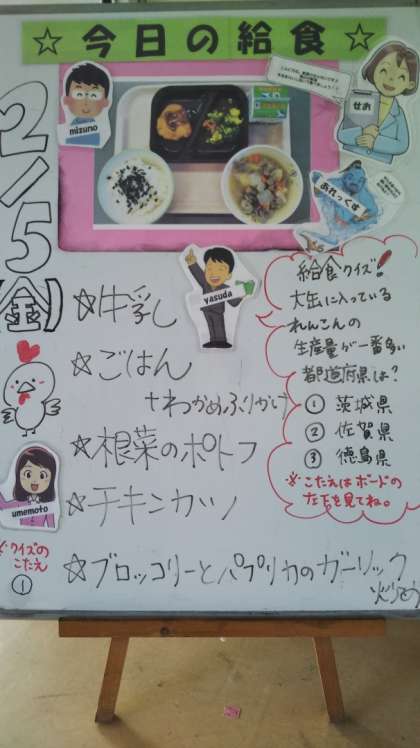 ☆今日の給食☆
mizuno
せお
あれっくす
2/5
(金)
yasuda
☆牛乳
☆ごはん
+わかめふりかけ
☆根菜のポトフ
☆チキンカツ
☆ブロッコリーとパプリカのガーリック
炒め
umemoto
※クイズの
こたえ
①
給食クイズ!
大缶に入っている
れんこんの
生産量が一番多い
都道府県は?
① 茨城県
② 佐賀県
③ 徳島県
※こたえはボードの
左下を見てね。